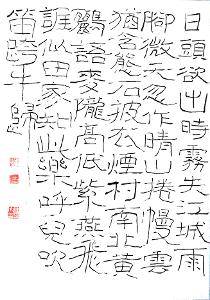 日頭欲出時霧失江城雨
腳微天忽作晴山捲幔雲
猶含態石披衣煙村南北黃
鸝語麥隴高低紫燕飛
誰似田家知此樂呼兒吹
笛跨牛歸